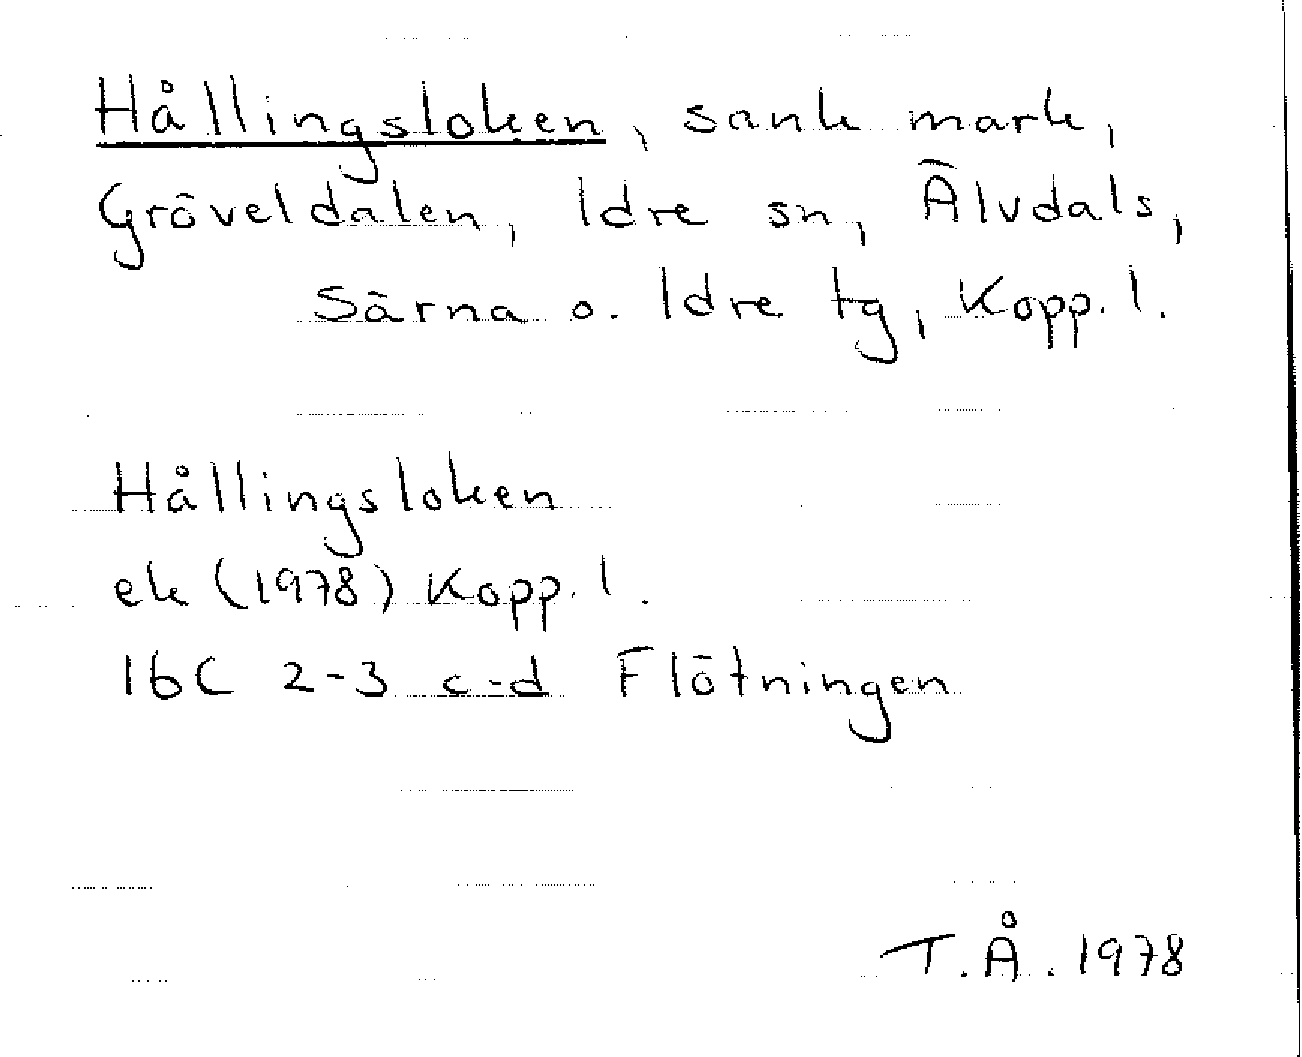 Hållingsloken, sank mark,
Gröveldalen, Idre sn, Älvdals,
Särna o. Idre tg, Kopp. l.
Hållingsloken
ek (1978) Kopp. l.
16C 2-3 c-d Flötningen
T.Å. 1978